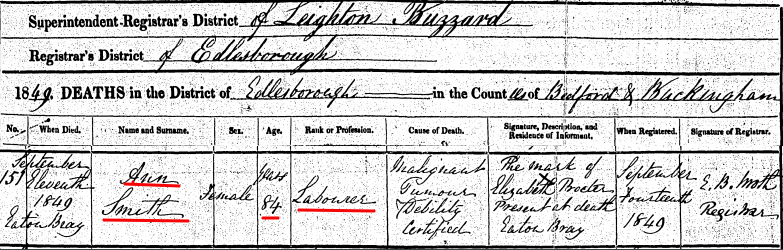 Superintendent-Registrar's District of Leighton Buzzard
Registrar's District of Edlesborough
1849. DEATHS in the District of Edlesborough in the Counties of Bedford & Buckingham
No. When Died. Name and Surname. Sex. Age. Rank or Profession. Cause of Death. Signature, Description, and Residence of Informant. When Registered. Signature of Registrar.
151
September
Eleventh
1849
Eaton Bray
Ann
Smith
Female
years
84
Labourer
Malignant
Tumour
Debility
Certified
The mark of
X
Elizabeth Procter
Present at death
Eaton Bray
September
Fourteenth
1849
E. B.
Registrar